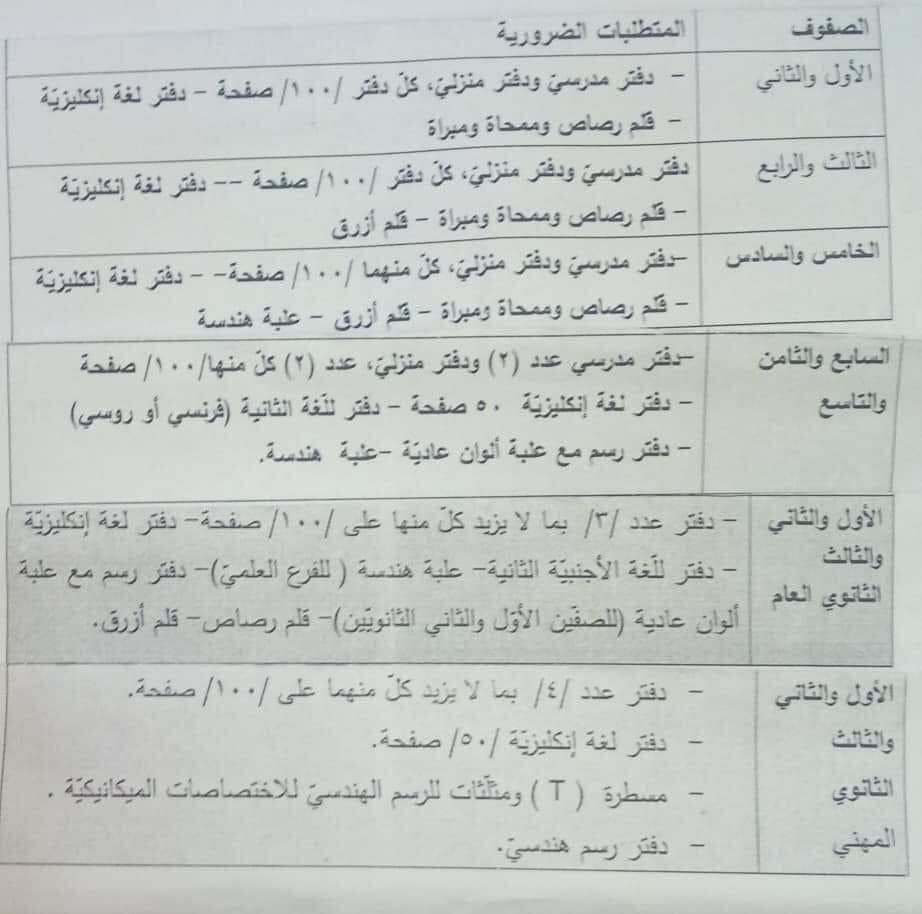 الصفوف المتطلبات الضرورية
الأول والثاني - دفتر مدرسيّ ودفتر منزليّ، كلّ دفتر /١٠٠/ صفحة - دفتر لغة إنكليزيّة
- قلم رصاص وممحاة ومبراة
الثالث والرابع دفتر مدرسيّ ودفتر منزليّ، كلّ دفتر /١٠٠/ صفحة -- دفتر لغة إنكليزيّة
- قلم رصاص وممحاة ومبراة - قلم أزرق
الخامس والسادس -دفتر مدرسيّ ودفتر منزليّ، كلّ منهما /١٠٠/ صفحة- - دفتر لغة إنكليزيّة
- قلم رصاص وممحاة ومبراة - قلم أزرق - علبة هندسة
السابع والثامن -دفتر مدرسي عدد (٢) ودفتر منزليّ، عدد (٢) كلّ منها/١٠٠/ صفحة
والتاسع - دفتر لغة إنكليزيّة ٥٠ صفحة - دفتر للّغة الثانية (فرنسي أو روسي)
- دفتر رسم مع علبة ألوان عاديّة -علبة هندسة.
الأول والثاني - دفتر عدد /٣/ بما لا يزيد كلّ منها على /١٠٠/ صفحة- دفتر لغة إنكليزيّة
والثالث - دفتر للّغة الأجنبيّة الثانية- علبة هندسة ( للفرع العلميّ)- دفتر رسم مع علبة
الثانوي العام ألوان عادية (للصفّين الأوّل والثاني الثانويّين)- قلم رصاص- قلم أزرق.
الأول والثاني - دفتر عدد /٤/ بما لا يزيد كلّ منهما على /١٠٠/ صفحة.
والثالث - دفتر لغة إنكليزيّة /٥٠/ صفحة.
الثانوي - مسطرة ( T ) ومثلّثات للرسم الهندسيّ للاختصاصات الميكانيكيّة .
المهني - دفتر رسم هندسيّ.